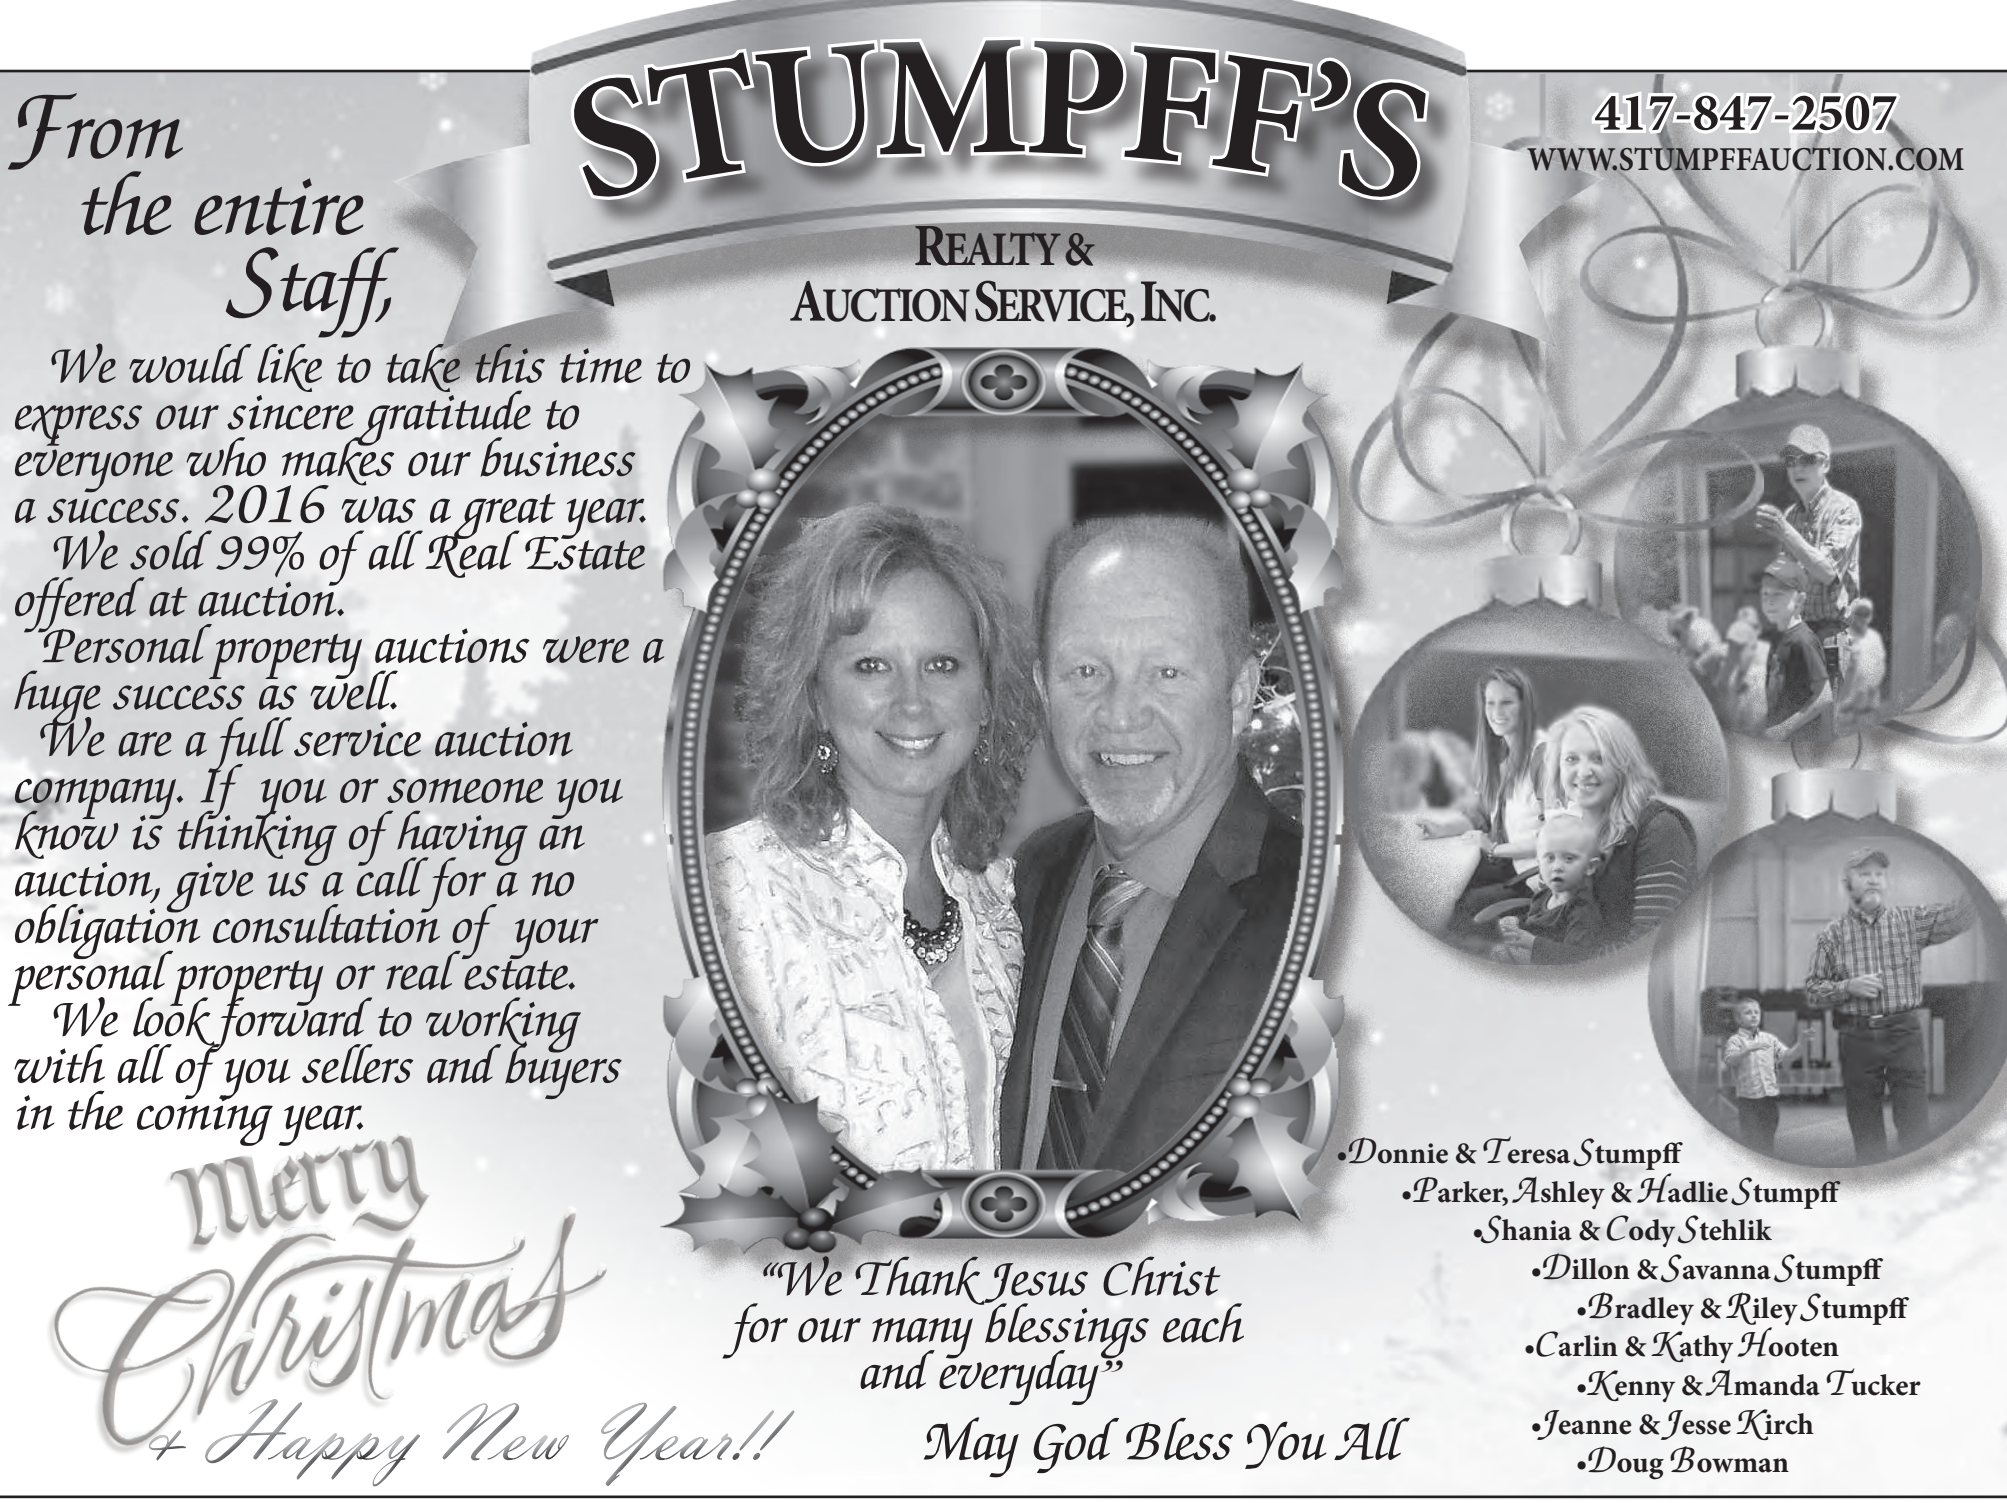 STUMPFF'S
REALTY &
AUCTION SERVICE, INC.
417-847-2507
WWW.STUMPFFAUCTION.COM
From
the entire
Staff,
We would like to take this time to
express our sincere gratitude to
everyone who makes our business
a success. 2016 was a great year.
We sold 99% of all Real Estate
offered at auction.
Personal property auctions were a
huge success as well.
We are a full service auction
company. If you or someone you
know is thinking of having an
auction, give us a call for a no
obligation consultation of your
personal property or real estate.
We look forward to working
with all of you sellers and buyers
in the coming year.
Merry
Christmas
+ Happy New Year!!
"We Thank Jesus Christ
for our many blessings each
and everyday"
May God Bless You All
•Donnie & Teresa Stumpff
•Parker, Ashley & Hadlie Stumpff
•Shania & Cody Stehlik
•Dillon & Savanna Stumpff
•Bradley & Riley Stumpff
•Carlin & Kathy Hooten
•Kenny & Amanda Tucker
•Jeanne & Jesse Kirch
•Doug Bowman